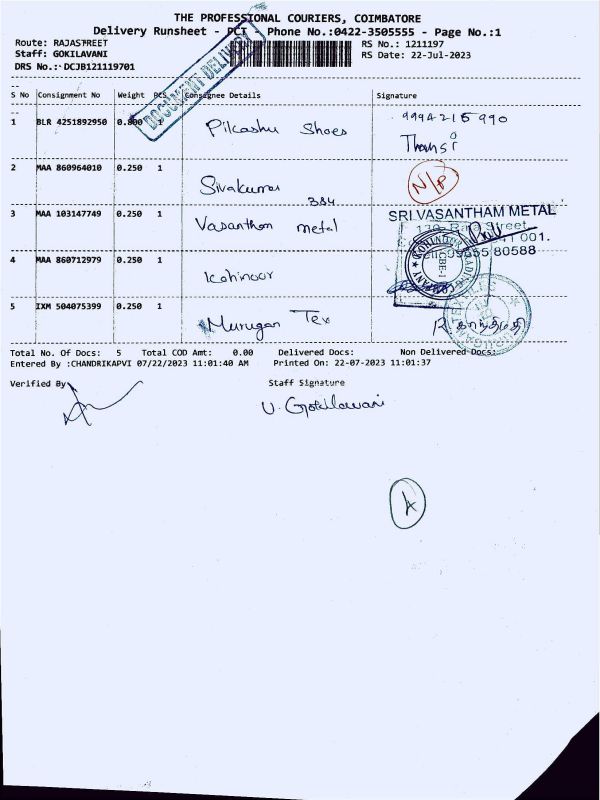 THE PROFESSIONAL COURIERS, COIMBATORE
Delivery Runsheet - PCT Phone No.:0422-3505555 - Page No.:1
Route: RAJASTREET RS No.: 1211197
Staff: GOKILAVANI RS Date: 22-Jul-2023
DRS No.: DCJB121119701
DOCUMENT DELIVERY
S No Consignment No Weight PCS Consignee Details Signature
1 BLR 4251892950 0.800 1 Pikashu Shoes 9994215990
2 MAA 860964010 0.250 1 Sivakumar 384 N/P
3 MAA 103147749 0.250 1 Vasantham metal SRI.VASANTHAM METAL
Raja Street
001.
80588
4 MAA 860712979 0.250 1 Kohinoor
KOHINOOR TRADING COMPANY
CBE-1
5 IXM 504075399 0.250 1 Murugan Tex R. சாந்திமதி
Total No. Of Docs: 5 Total COD Amt: 0.00 Delivered Docs: Non Delivered Docs:
Entered By :CHANDRIKAPVI 07/22/2023 11:01:40 AM Printed On: 22-07-2023 11:01:37
Verified By Staff Signature
U. Gokilavani
A